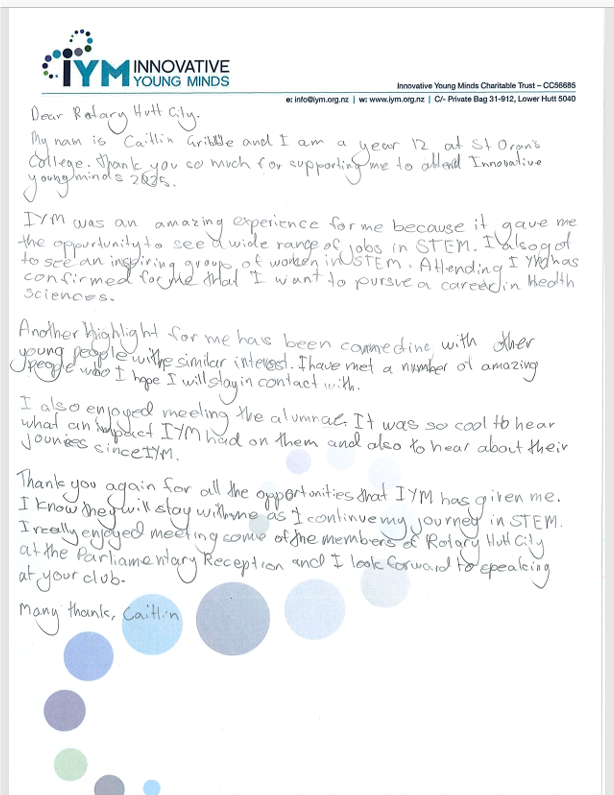 IYM INNOVATIVE
YOUNG MINDS
Innovative Young Minds Charitable Trust – CC56685
e: info@iym.org.nz | w: www.iym.org.nz | C/- Private Bag 31-912, Lower Hutt 5040
Dear Rotary Hutt City.
My nam is Caitlin Gribble and I am a year 12 at St Oran's
College. Thank you so much for supporting me to attend Innovative
young minds 2025.
IYM was an amazing experience for me because it gave me
the oppurtunity to see a wide range of jobs in STEM. I also got
to see an inspiring group of women in STEM. Attending IYM has
confirmed for me that I want to pursue a career in Health
Sciences.
Another highlight for me has been connecting with other
young people with similar interest. I have met a number of amazing
people who I hope I will stay in contact with.
I also enjoyed meeting the alumnae. It was so cool to hear
what an impact IYM had on them and also to hear about their
jounies since IYM.
Thank you again for all the opportunities that IYM has given me.
I know they will stay with me as I continue my journey in STEM.
I really enjoyed meeting some of the members of Rotary Hutt City
at the Parliamentary Reception and I look forward to speaking
at your club.
Many thanks, Caitlin